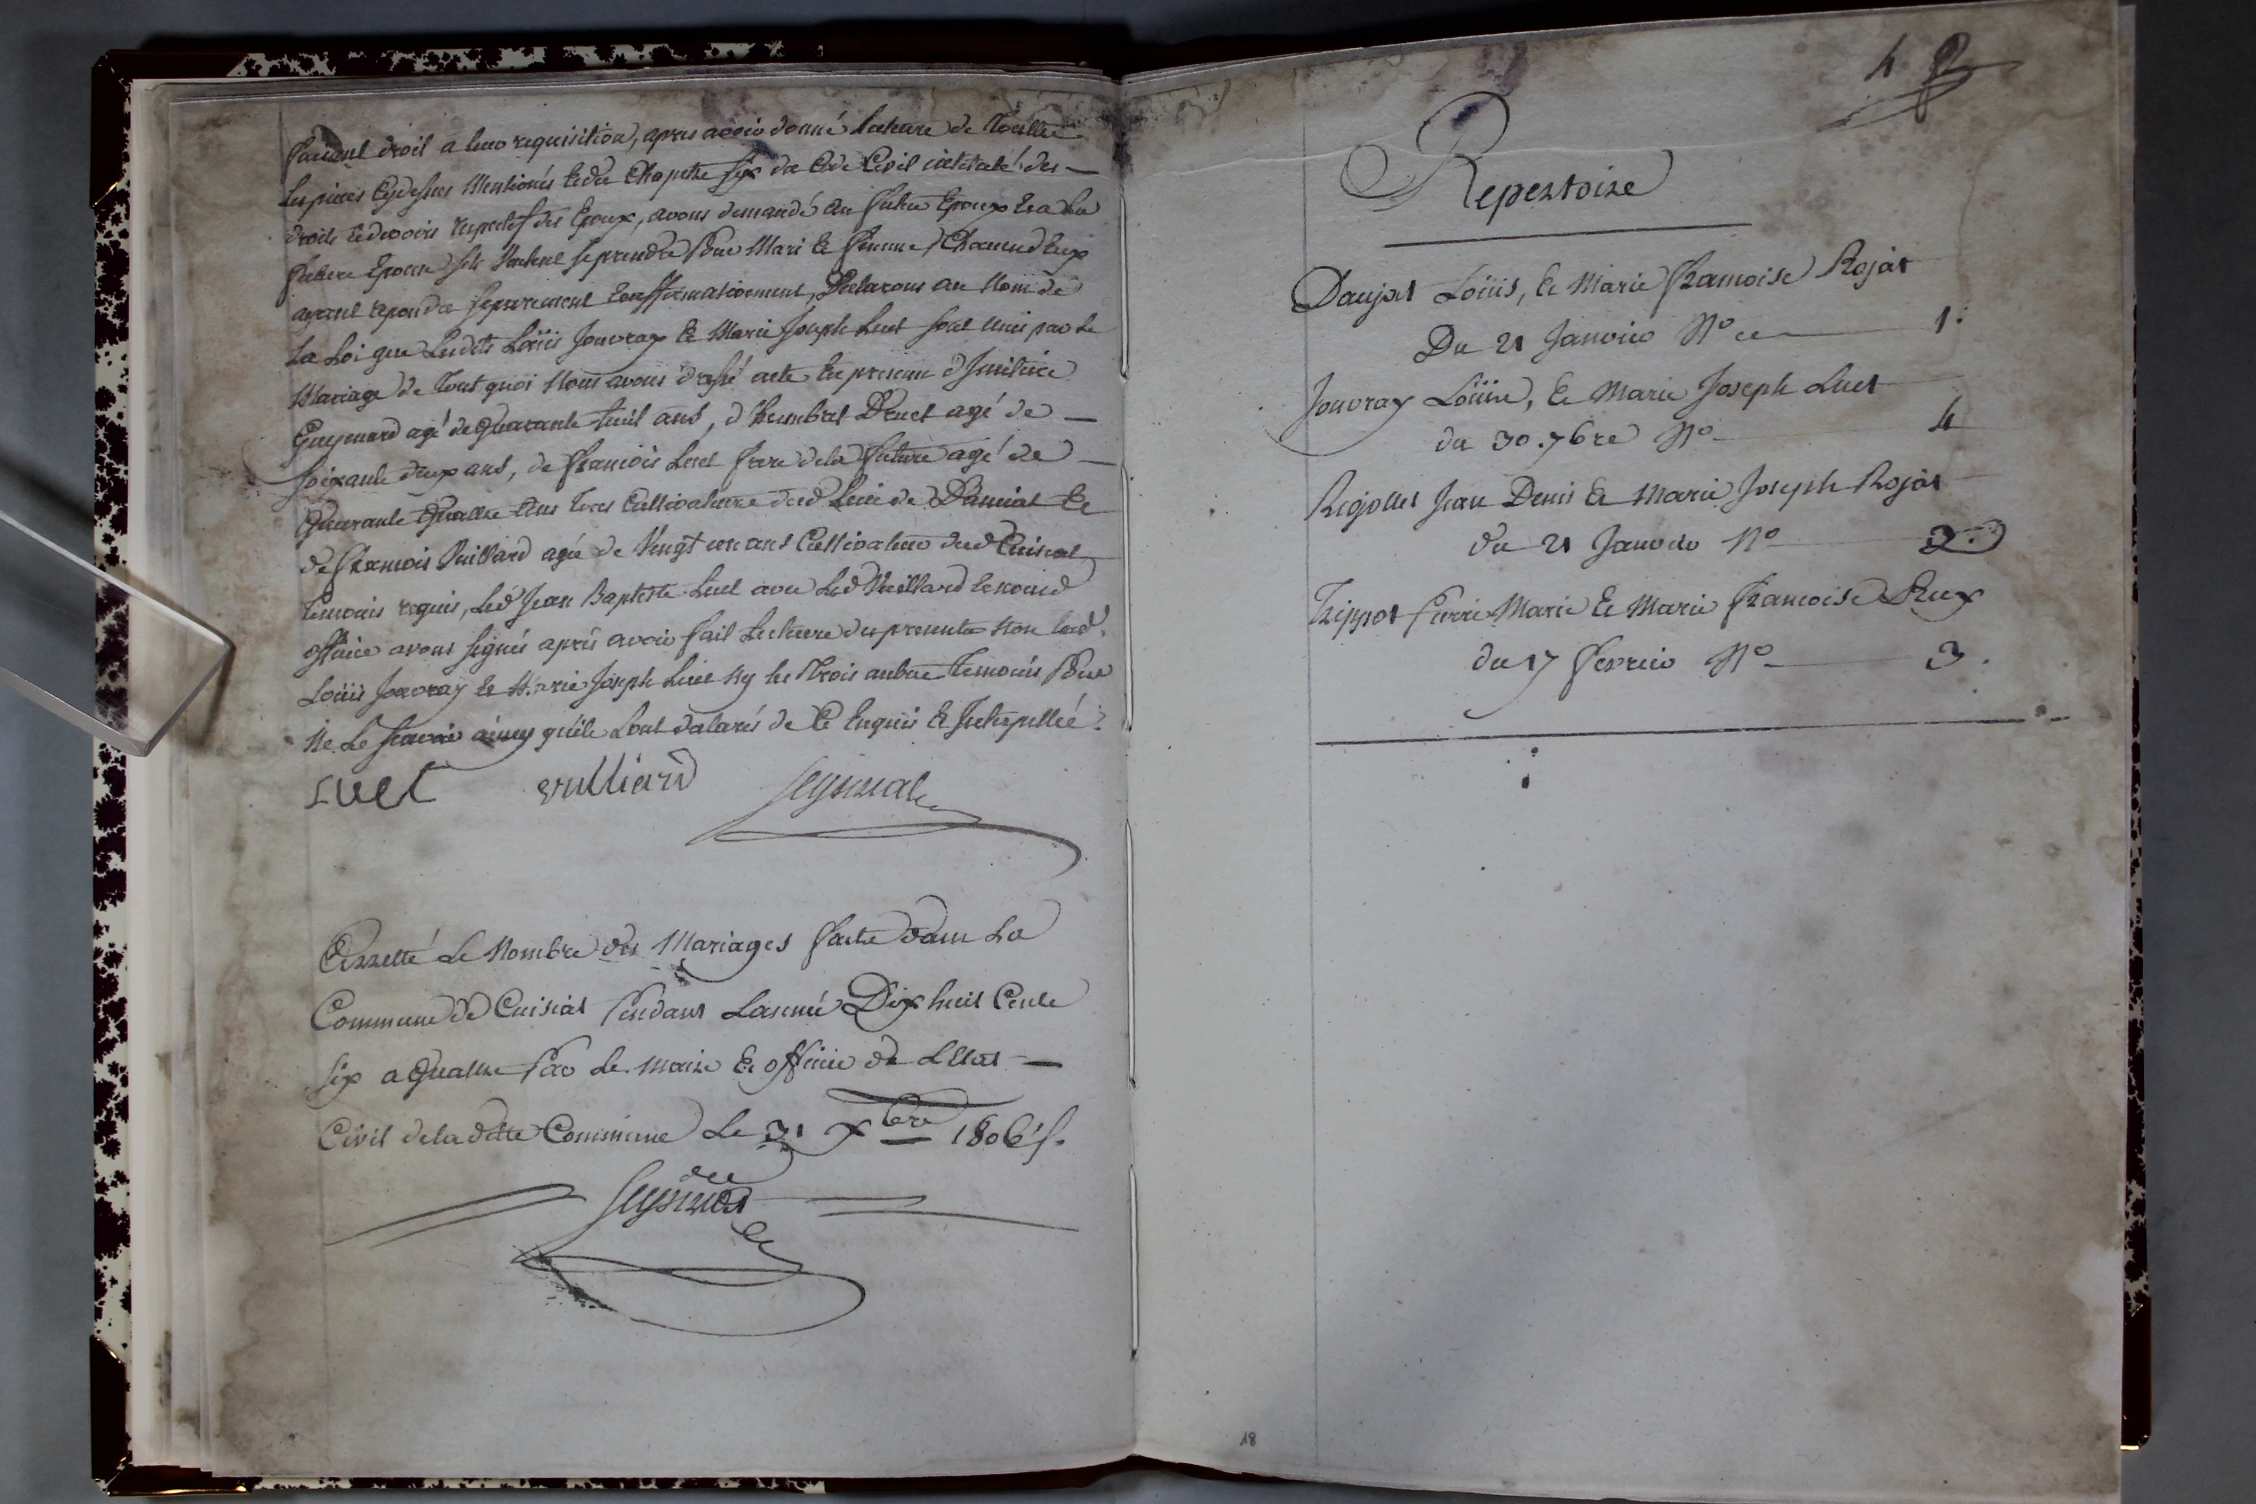 faisant droit a leur requisition, apres avoir donné lecture de Toutte
Les pieces Cydessus Mentionés & du Chapitre six du Code Civil intitulé des —
droits & devoirs respectif des Epoux, avons demandé au futur Epoux & a La
future Epouse s'ils Veulent se prendre Pour Mari & femme, Chacun d'Eux
ayant repondu separement & affirmativement, Declarons au Nom de
La Loi que Lesdits Loüis Jouvray & Marie Joseph Luet sont unis par Le
Mariage de Tout quoi Nous avons dressé acte En presence d'
Guymard agé de Quarante huit ans, d'Humbert Druet agé de —
soixante deux ans, de francois Luet frere de la future agé de —
Quarante Quattre ans Tous Cultivateurs dud Lieu de &
de francois Vuilliard agé de Vingt un ans Cultivateur dud Cuisiat
Temoins requis, Led Jean Baptiste Luet avec Led Vuilliard & nousd
officier avons signés aprés avoir fait Lecture du presente Non Led.
Loüis Jouvray & Marie Joseph Luet Ny les Trois autres Temoins Pour
Ne Le scavoir ainsy qu'ils L'ont dalarés de Ce Enquis & Interpellée.
Luet vulliard
Arretté Le Nombre des Mariages faite dans La
Commune de Cuisiat Pendant Lannée Dix huit Cents
six a Quattre Par Le Maire & officier de L'Etat —
Civil de la ditte Commune Le 31 Xbre 1806 /.
4
Repertoire
Daujat Loüis, & Marie francoise Rojat
Du 21 Janvier No 1.
Jouvray Loüis, & Marie Joseph Luet
du 30. 7bre No 4
Rigollet Jean Denis & Marie Joseph Rojat
du 21 Janvier No 2
Trippot Pierre Marie & Marie francoise Rux
du 17 fevrier No 3.
18